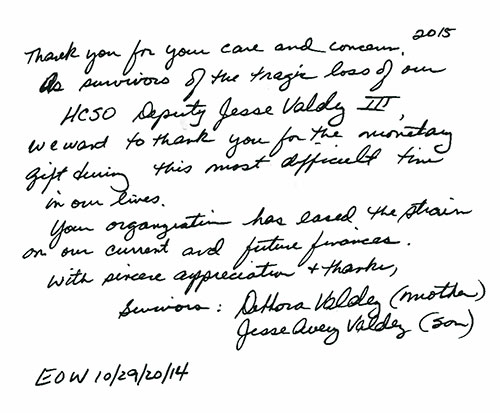 2015
Thank you for your care and concern.
As survivors of the tragic loss of our
HCSO Deputy Jesse Valdez III,
we want to thank you for the monetary
gift during this most difficult time
in our lives.
Your organization has eased the strain
on our current and future finances.
With sincere appreciation & thanks,
Survivors: Dethora Valdez (mother)
Jesse Avery Valdez (son)
EOW 10/29/20/14